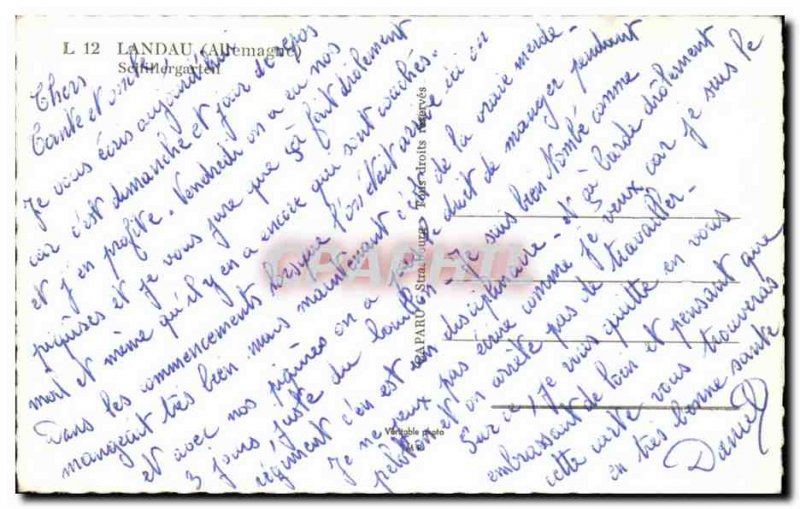 L 12 LANDAU (Allemagne)
Schillergarten
Chers
Tante et oncle
Je vous écris aujourd'hui
car c'est dimanche et jour de repos
et j'en profite. Vendredi on a eu nos
piqûres et je vous jure que çà fait drôlement
mort et même qu'il y en a encore qui sont couchés.
Dans les commencements lorsque l'on était arrivé ici on
mangeait très bien mais maintenant c'est de la vraie merde
et avec nos piqûres on a pas le droit de manger pendant
3 jours, juste du bouillon. Je suis bien tombé comme
régiment c'en est un disciplinaire. et çà barde drôlement
Je ne veux pas écrire comme je veux car je suis le
peloton et on arrête pas de travailler.
Sur ce ! je vous quitte en vous
embrassant de loin et pensant que
cette carte vous trouveras
en très bonne santé
Daniel
CAPARU Strasbourg Tous droits réservés
Véritable photo
CPAPHIL